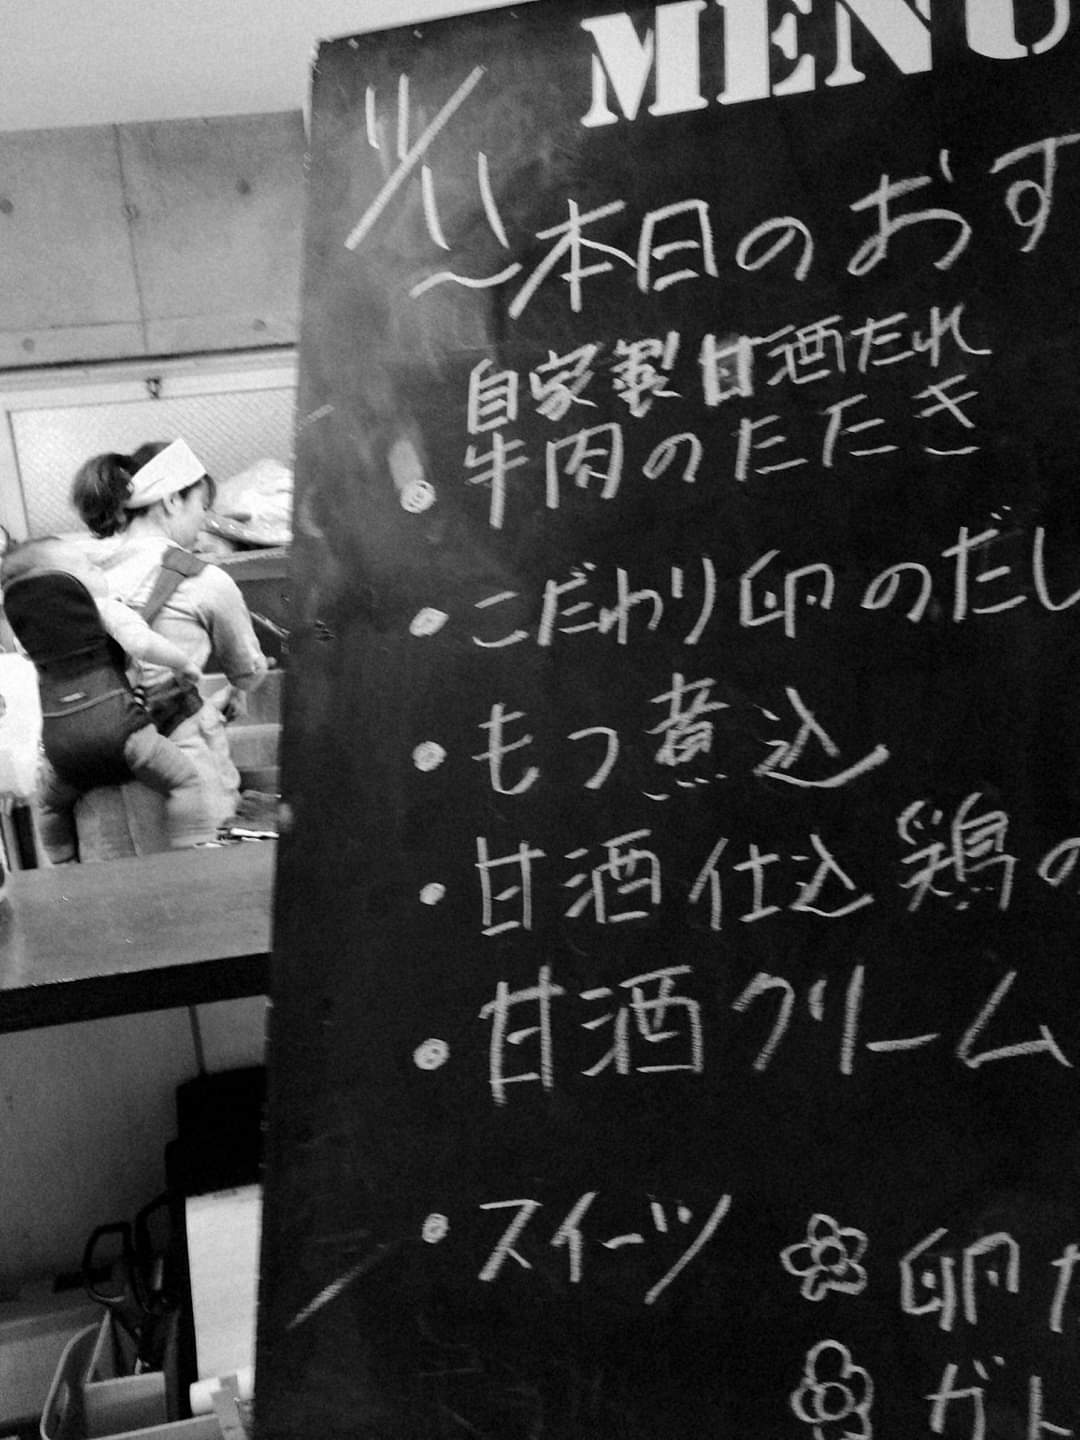 MENU
11/11
～本日のおす
自家製甘酒だれ
・牛肉のたたき
・こだわり卵のだし
・もつ煮込
・甘酒仕込鶏の
・甘酒クリーム
・スイーツ 卵
ガト